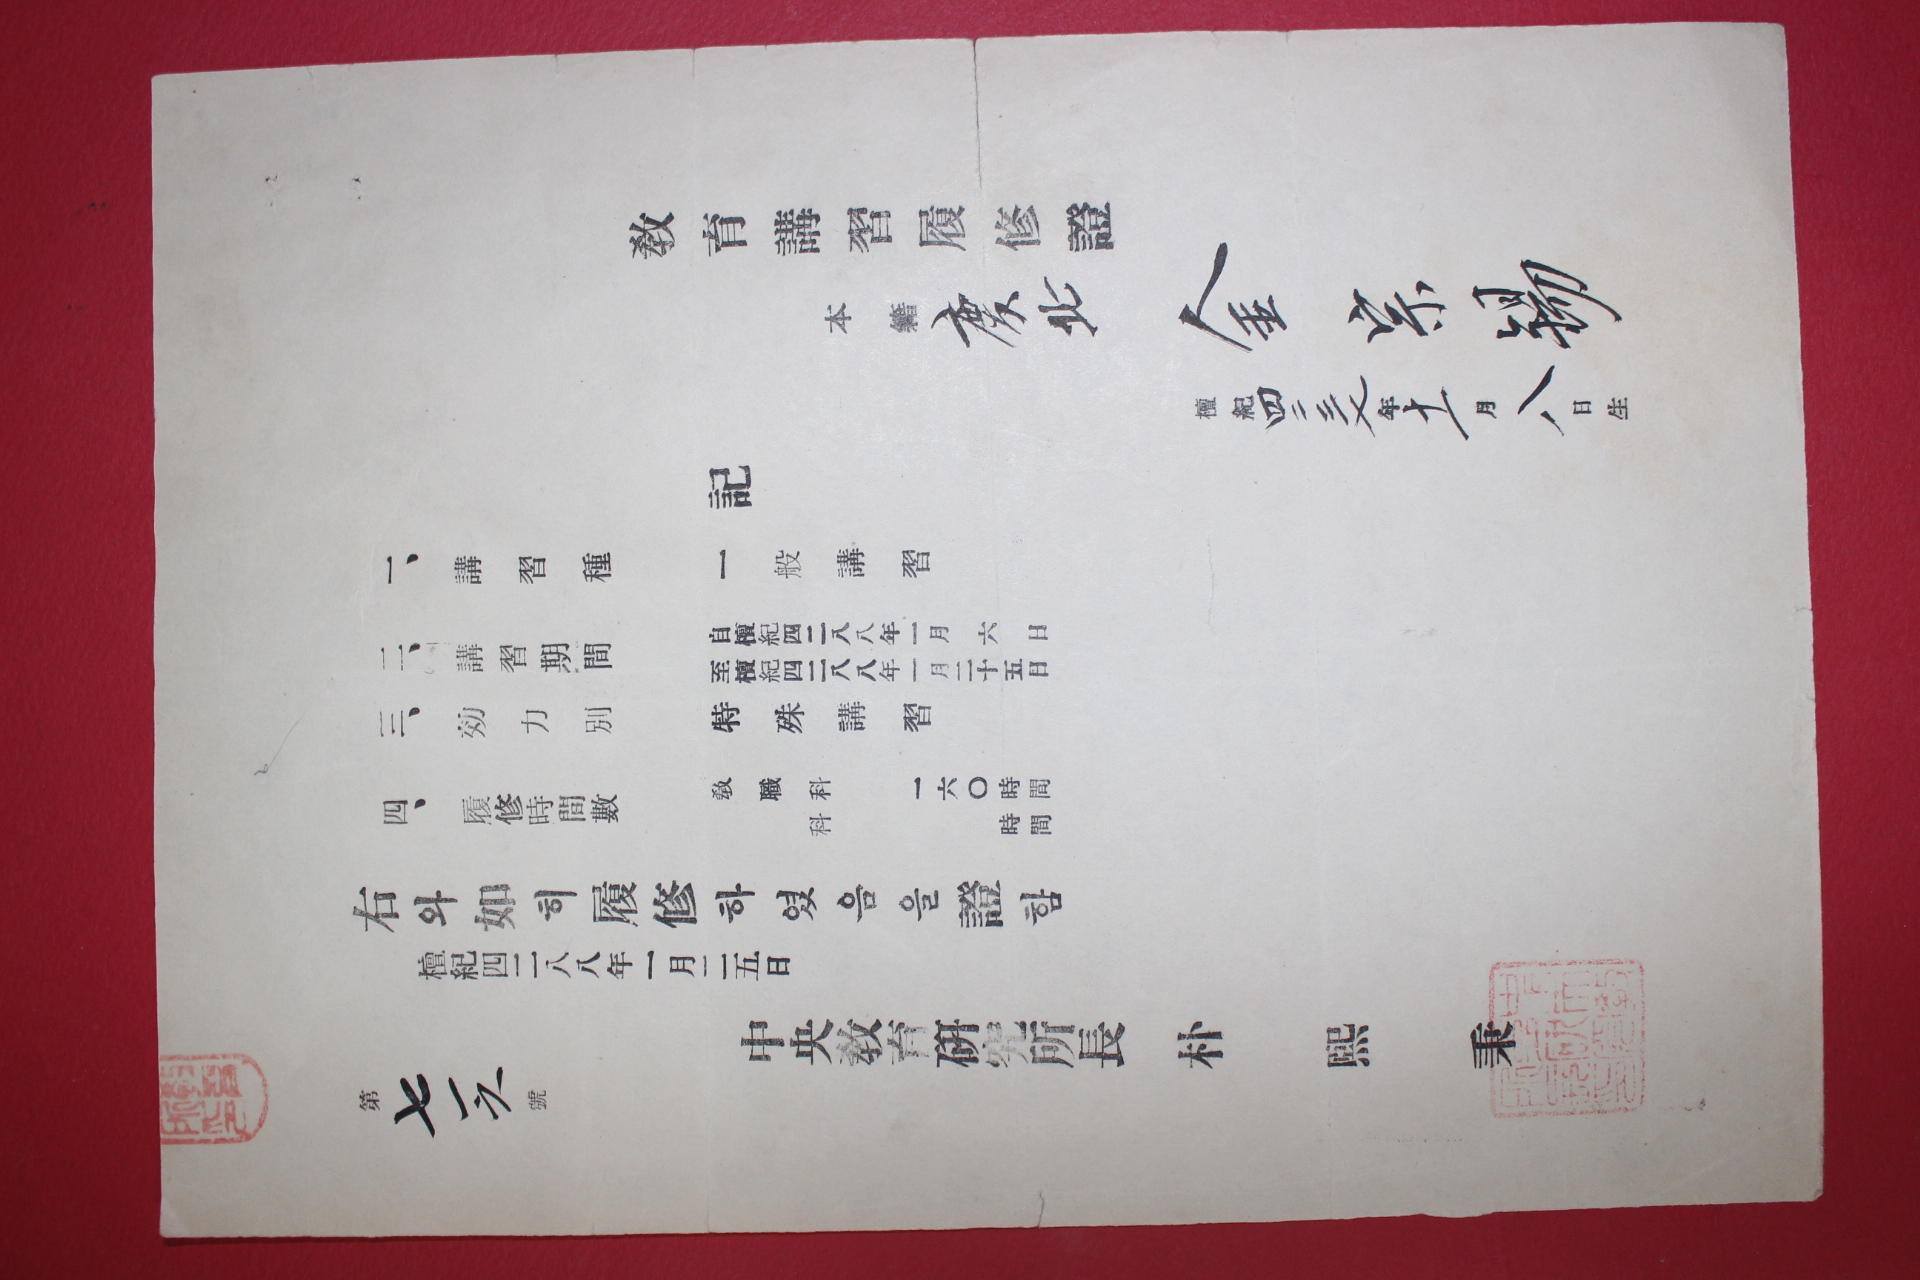 敎育講習履修證
本籍 慶北
金宗錫
檀紀四二三七年十一月八日生
記
一、講習種 一般講習
二、講習期間 自檀紀四二八八年一月六日
至檀紀四二八八年一月二十五日
三、効力別 特殊講習
四、履修時間數 敎職科 一六〇時間
科 時間
右와如히履修하였음을證함
檀紀四二八八年一月二五日
中央敎育硏究所長 朴熙秉
第七一六號